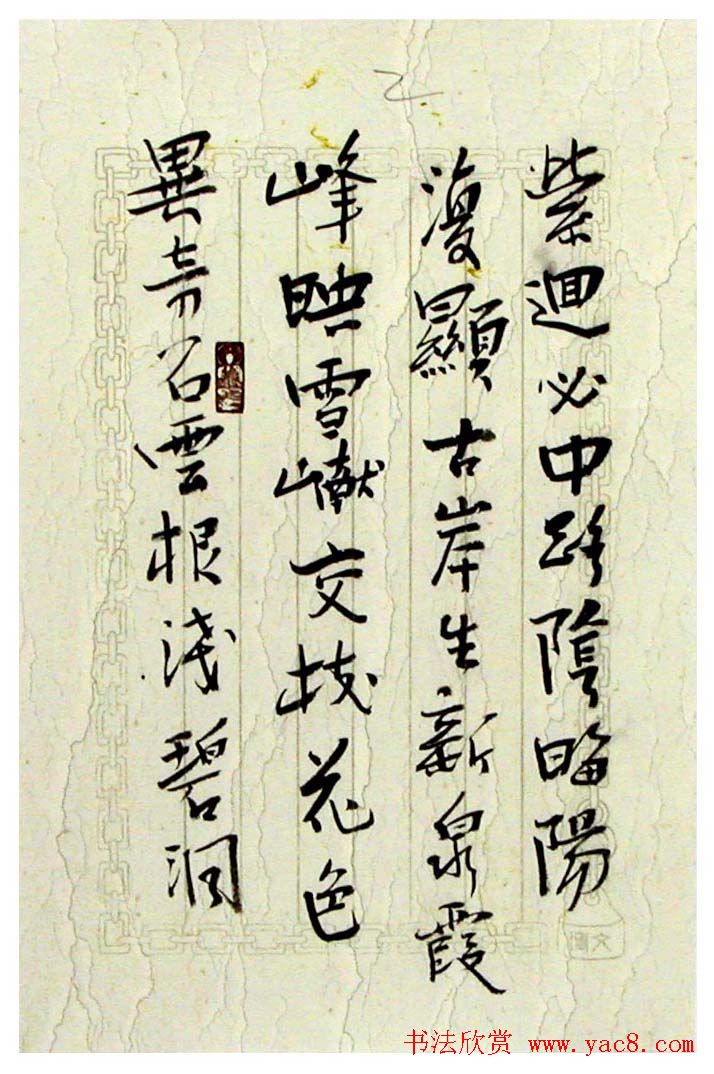 縈迴必中路陰晦陽
復顯古岸生新泉霞
峰映雪巘交枝花色
異奇石雲根淺碧洞
乙
文
书法欣赏 www.yac8.com